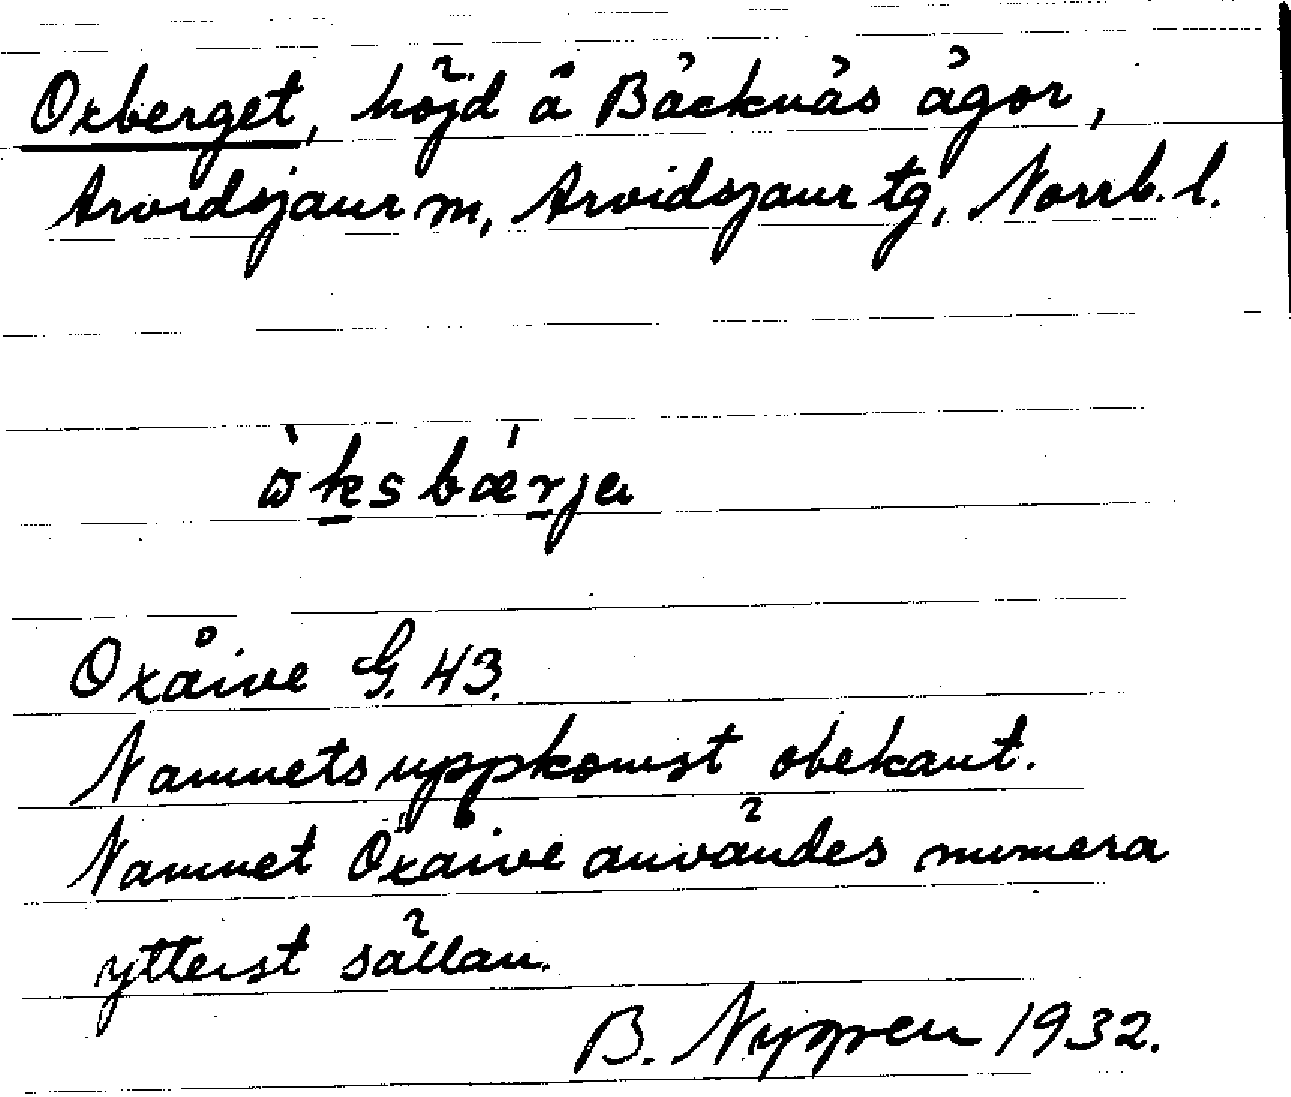 Oxberget, höjd å Bäcknäs ägor,
Arvidsjaur m, Arvidsjaur tg, Norrb. l.
ò̀ksbǽrja
Oxåive G. 43.
Namnets uppkomst obekant.
Namnet Oxåive användes numera
ytterst sällan.
B. Nygren 1932.